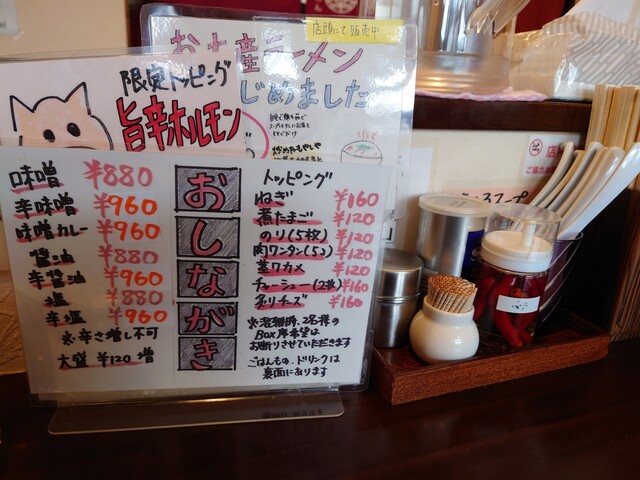 店頭にて販売中
お土産ラーメン
はじめました
限定トッピング
旨辛ホルモン
おしながき
味噌 ¥880
辛味噌 ¥960
味噌カレー ¥960
醤油 ¥880
辛醤油 ¥960
塩 ¥880
辛塩 ¥960
※辛さ増し不可
大盛 ¥120増
トッピング
ねぎ ¥160
煮たまご ¥120
のり(5枚) ¥120
肉ワンタン(5コ) ¥120
茎ワカメ ¥120
チャーシュー(2枚) ¥160
炙りチーズ ¥160
※混雑時、2名様の
Box席希望は
お断りさせていただきます
ごはんもの、ドリンクは
裏面にあります